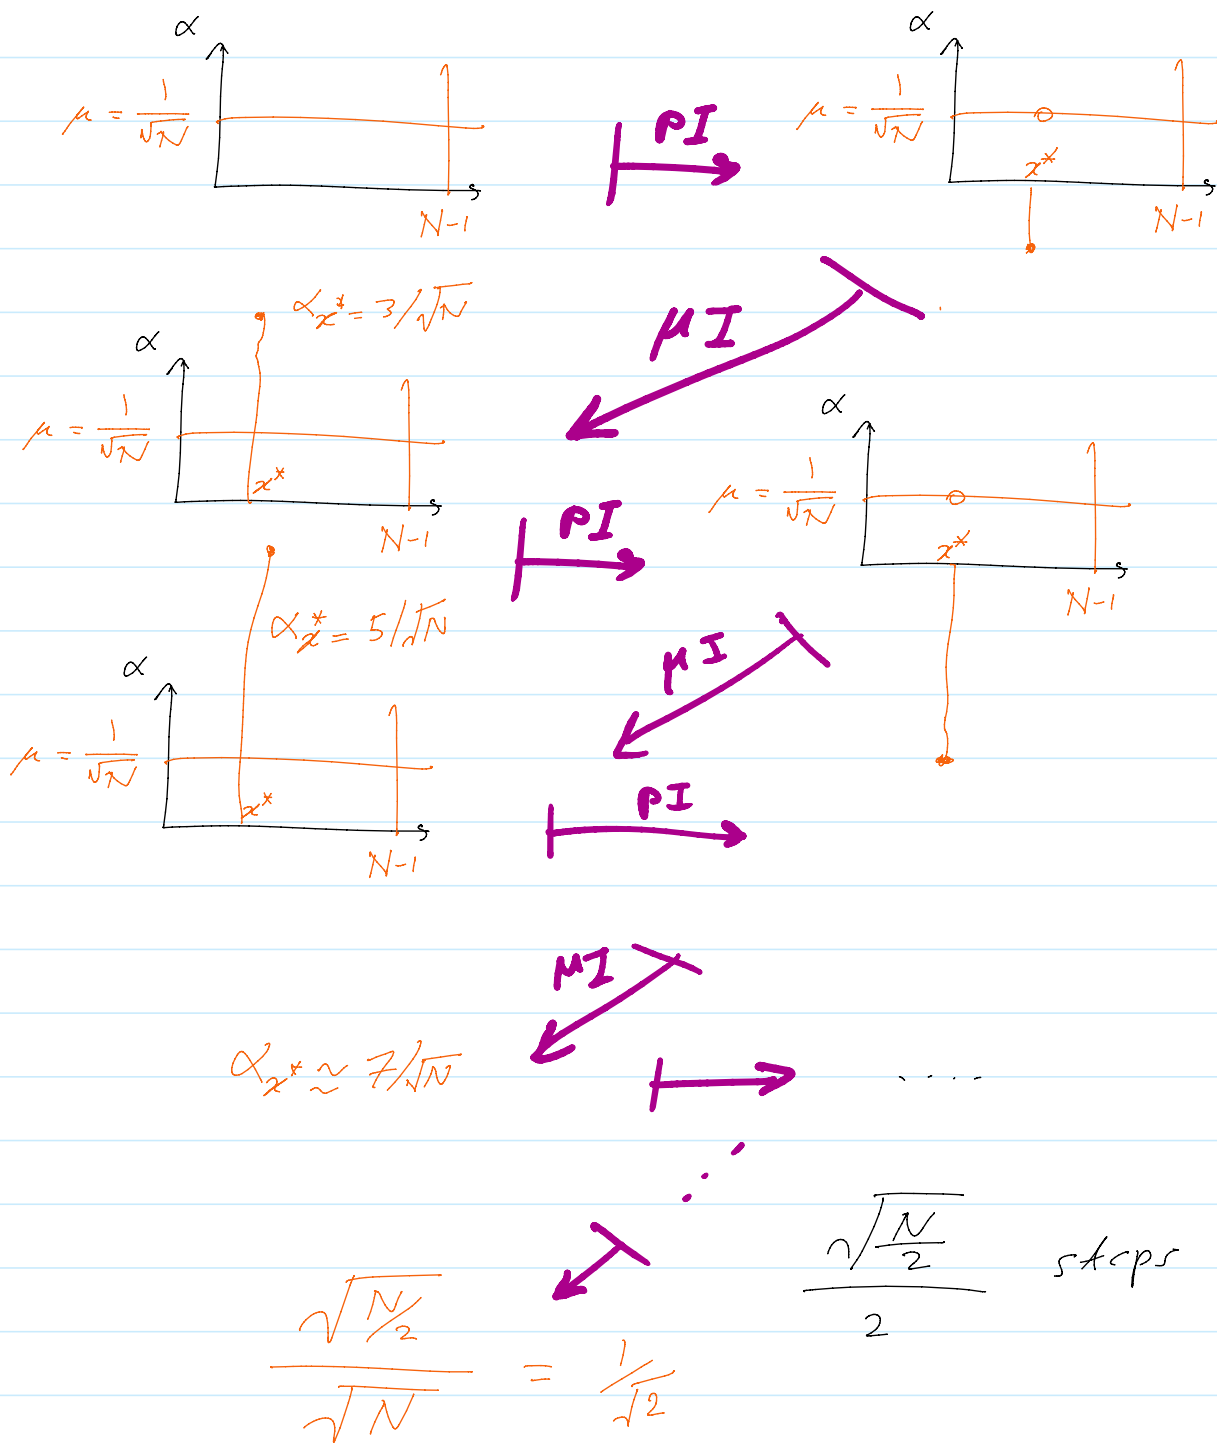 α
α
μ = 1/√N
PI
μ = 1/√N
x*
N-1
N-1
α_x* = 3/√N
μI
α
μ = 1/√N
x*
N-1
PI
α
μ = 1/√N
x*
N-1
α_x* = 5/√N
μI
α
μ = 1/√N
x*
N-1
PI
μI
α_x* ≈ 7/√N
....
√(N/2)/2 steps
√(N/2)/√N = 1/√2